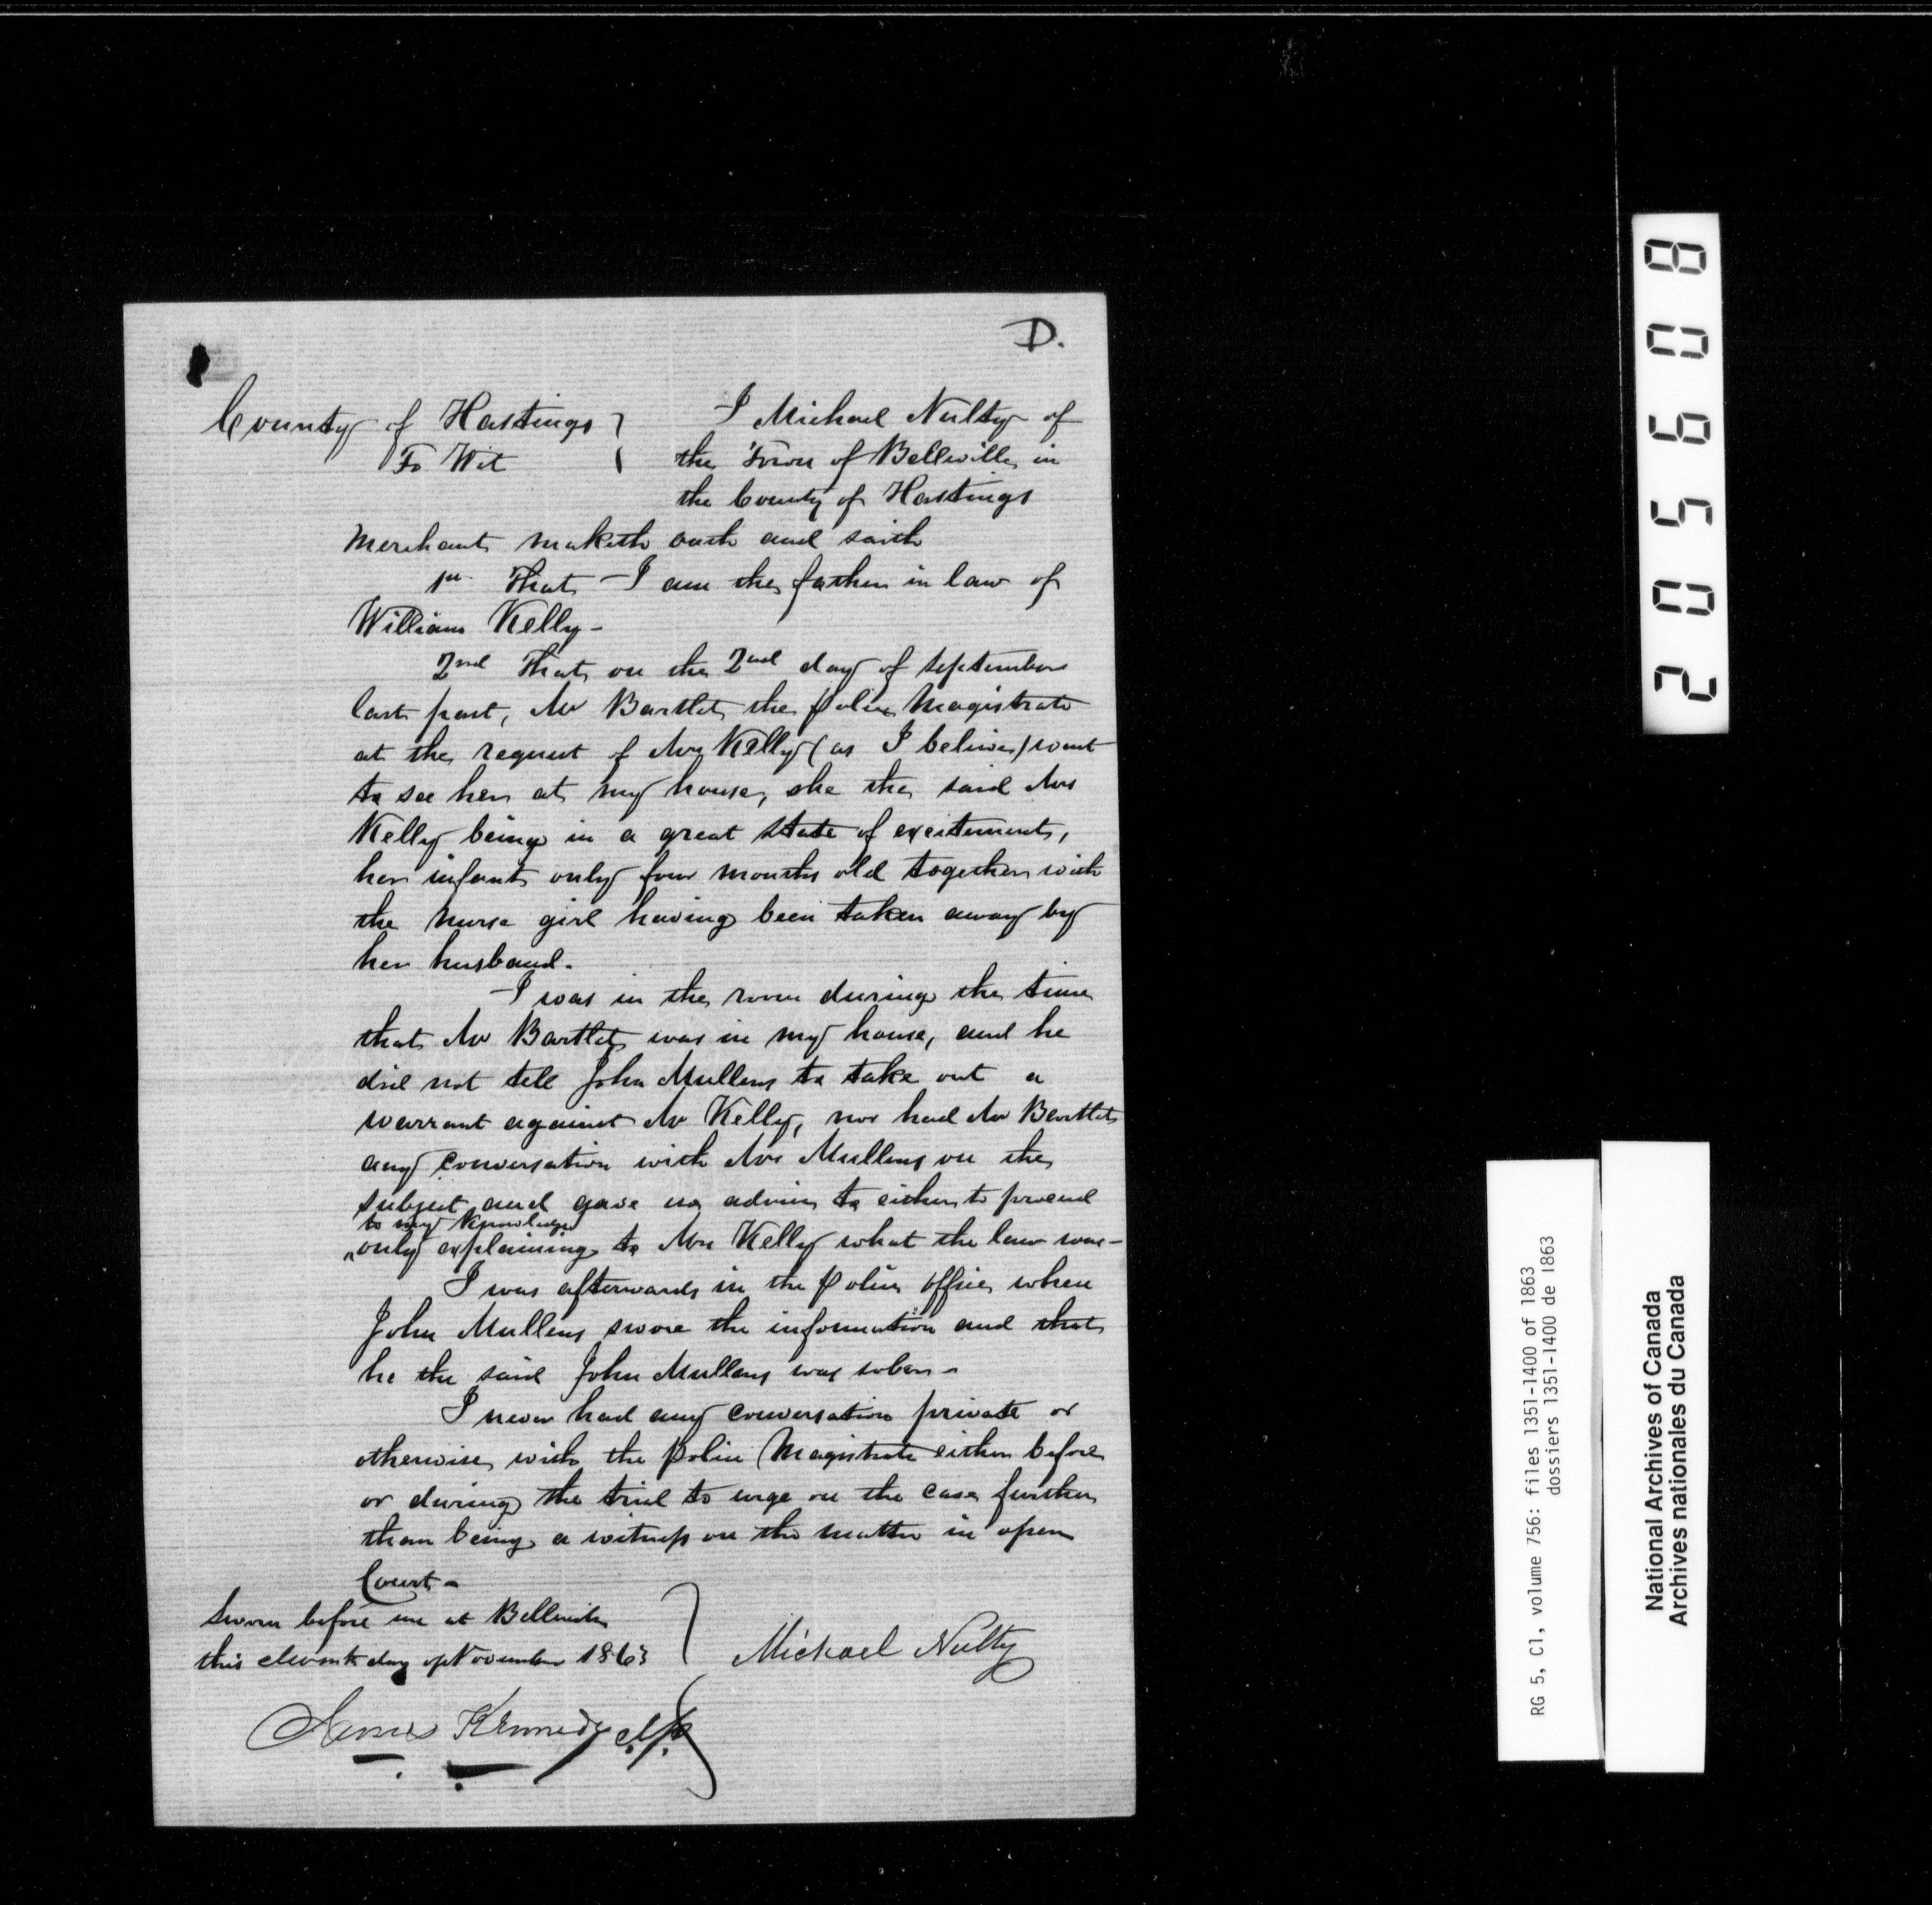 D.
County of Hastings } I Michael Nulty of
To Wit } the Town of Belleville in
the County of Hastings
Merchant maketh oath and saith
1st That I am the father in law of
William Kelly -
2nd That on the 2nd day of September
last past, Mr Bartlet the police Magistrate
at the request of Mrs Kelly (as I believe) went
to see her at my house, she the said Mrs
Kelly being in a great state of excitement,
her infant only four months old together with
the nurse girl having been taken away by
her husband.
I was in the room during the time
that Mr Bartlet was in my house, and he
did not tell John Mullens to take out a
warrant against Mr Kelly, nor had Mr Bartlet
any conversation with Mrs Mullens on the
subject and gave no advice to either to proceed
to my Knowledge
only explaining to Mrs Kelly what the law was -
I was afterwards in the police office when
John Mullens swore the information and that
he the said John Mullens was sober -
I never had any conversation private or
otherwise with the police Magistrate either before
or during the trial to urge on the case further
than being a witness on the matter in open
Court -
Sworn before me at Belleville
this eleventh day of November 1863 } Michael Nulty
Kennedy
205608
RG 5, C1, volume 756: files 1351-1400 of 1863
dossiers 1351-1400 de 1863
National Archives of Canada
Archives nationales du Canada